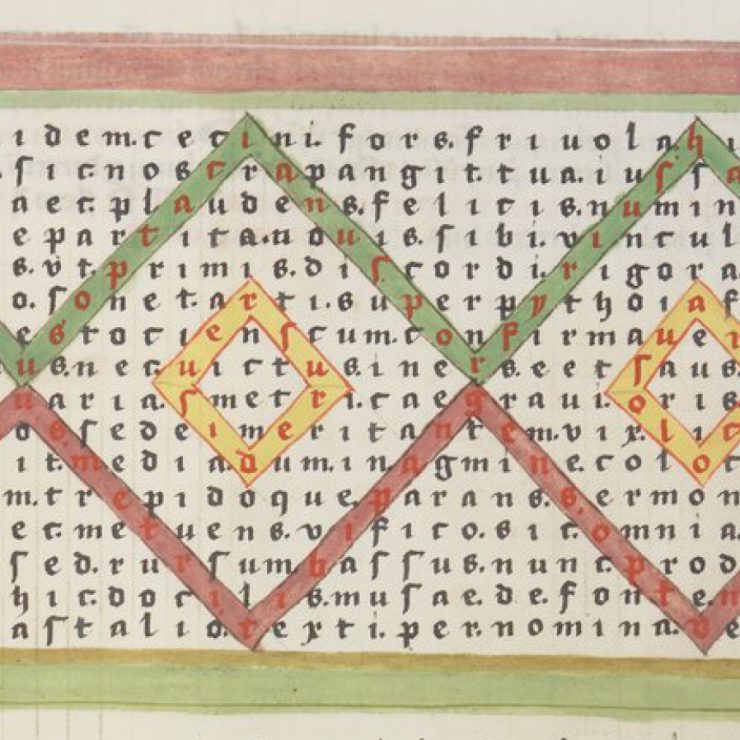 idem.cecini.fors.friuolahi
sic.nostrapangit.tua.iussa
aec.plaudens.felicis.numin
epartita.nduis.sibi.vincul
s.vt.primis.discordi.rigora.
o.sonet.arti.superpythoiaf
estocienscum.confirmauer
us.necuictus.iners.eetsaus.
uaria.smetri.caegraui.oris
ossedeimeritantem.vix.lic
it.media.dum.inagmine.coloc
m.trepidoque.parans.sermon
et.metuens.vifico.sic.omnia.
sed.rursum.hassus.nunc.prod
hic.docilis.musae.de.fonte.m
astalio.texti.per.nomina.ve